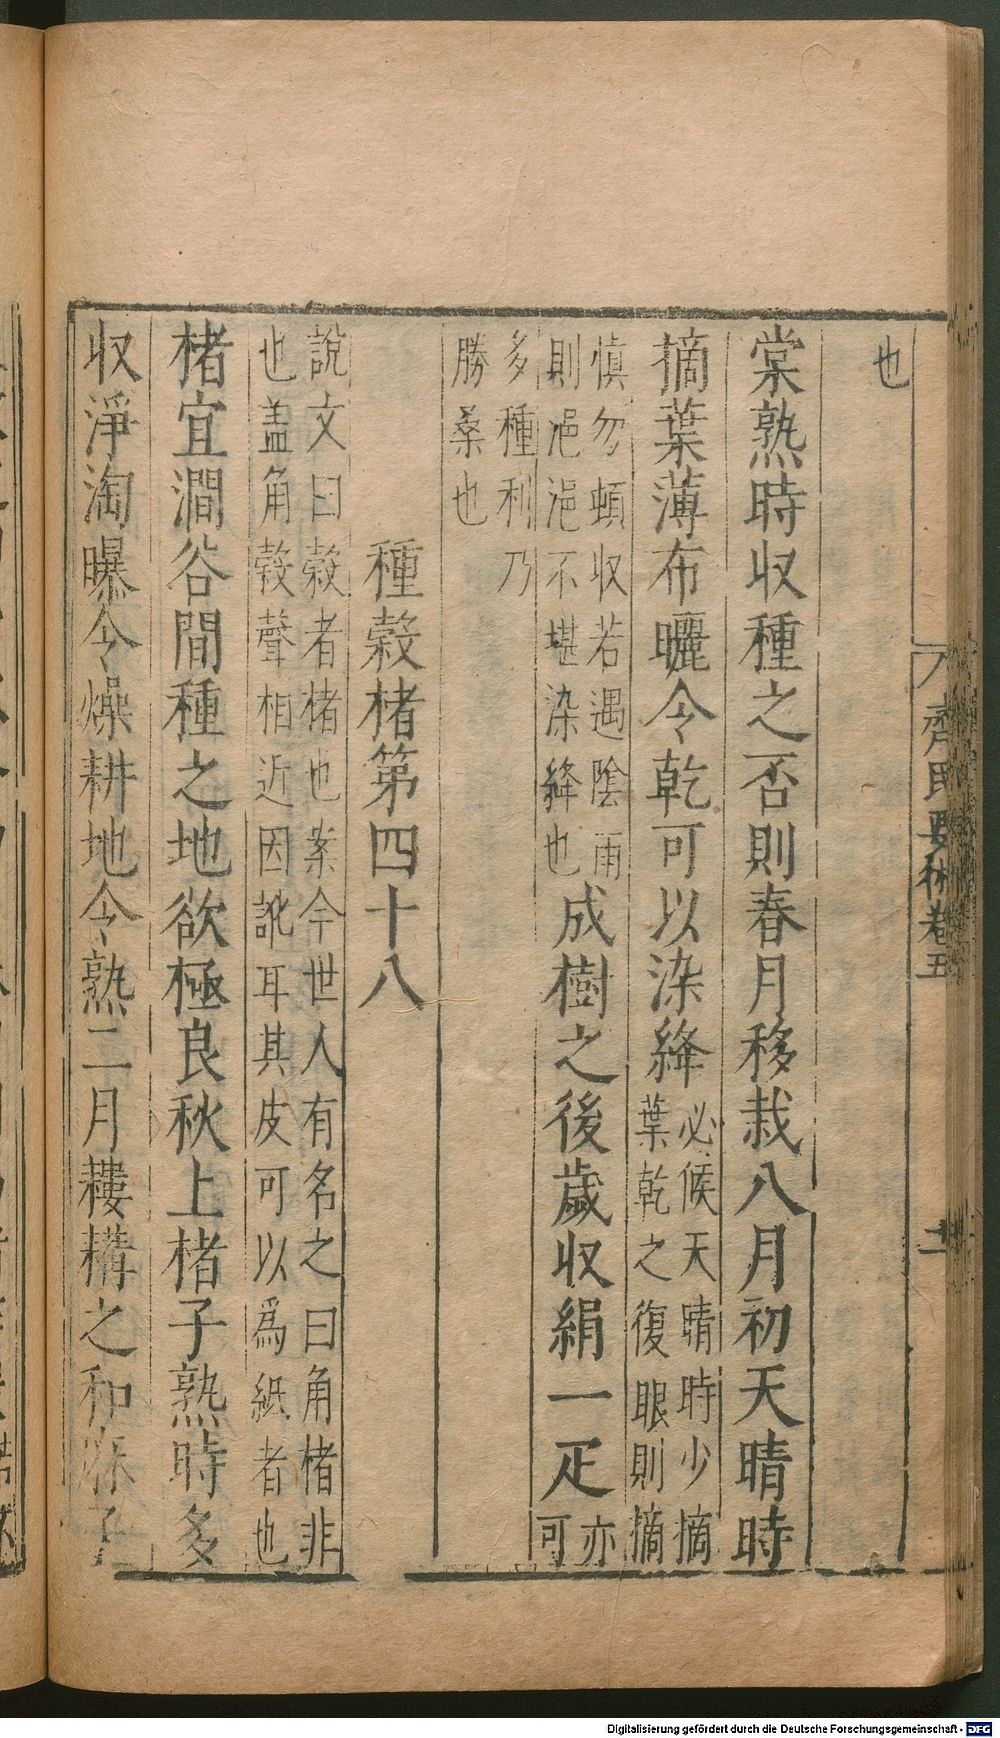 齊民要術卷五
二
也
棠熟時収種之否則春月移栽八月初天晴時
摘葉薄布曬令乾可以染絳必候天晴時少摘
葉乾之復眼則摘
慎勿頓収若遇陰雨
則浥浥不堪染絳也成樹之後歲収絹一疋亦
可
多種利乃
勝桑也
種榖楮第四十八
說文曰榖者楮也案今世人有名之曰角楮非
也盖角榖聲相近因訛耳其皮可以為紙者也
楮宜澗谷間種之地欲極良秋上楮子熟時多
収淨淘曝令燥耕地令熟二月耬耩之和麻子
Digitalisierung gefördert durch die Deutsche Forschungsgemeinschaft - DFG